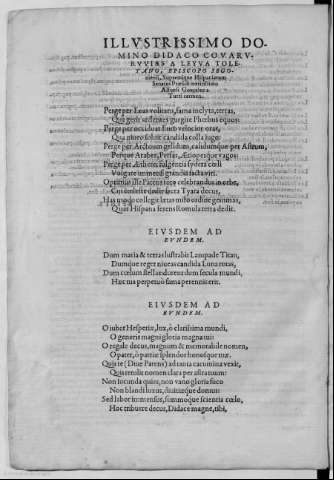 ILLVSTRISSIMO DO-
MINO DIDACO COVARV-
RVVIAS A LEYVA TOLE-
TANO, EPISCOPO SEGO-
uiensi, Supremique Hispaniarum
Senatus Præsidi
Alfonsi
Turri cremata.
Perge per Eoas volitans, fama inclyta, terras,
Qua gurgite Phœbus equos:
Perge per occiduas siue velocior oras,
Qua niueo soluit candida colla iugo:
Perge per Arctoum gelidum, calidumque per Austrum,
Perque Arabes, Persas, Æthiopesque vagos:
Perge per ætherei fulgentia sydera cœli
Vulgare immensi grandia facta viri.
Optimus ille Pater toto celebrandus in orbe,
Cui dedit sacra Tyara decus,
Has modo collegit lætas misto ordine gemmas,
Quas Hispana ferens Romula terra dedit.
EIVSDEM AD
EVNDEM.
Dum maria & terras lustrabit Lampade Titan,
Dumque reget niueas candida Luna rotas,
Dum cœlum stellæ dorent dum secula mundi,
Hæc tua perpetuò fama perennis erit.
EIVSDEM AD
EVNDEM.
O iubar Hesperiæ, lux, ô clarissima mundi,
O generis magni gloria magna tui:
O regale decus, magnum & memorabile nomen,
O pater, ô patriæ splendor honosque tuæ.
Quis te (Diue Parens) ad tanta cacumina vexit,
Quis retulit nomen clara per astra tuum?
Non iocunda quies, non vano gloria fuco
Non blandi luxus, diuitiæque domus:
Sed labor immensus, summoque scientia cœlo,
Hoc tribuere decus, Didace magne, tibi,